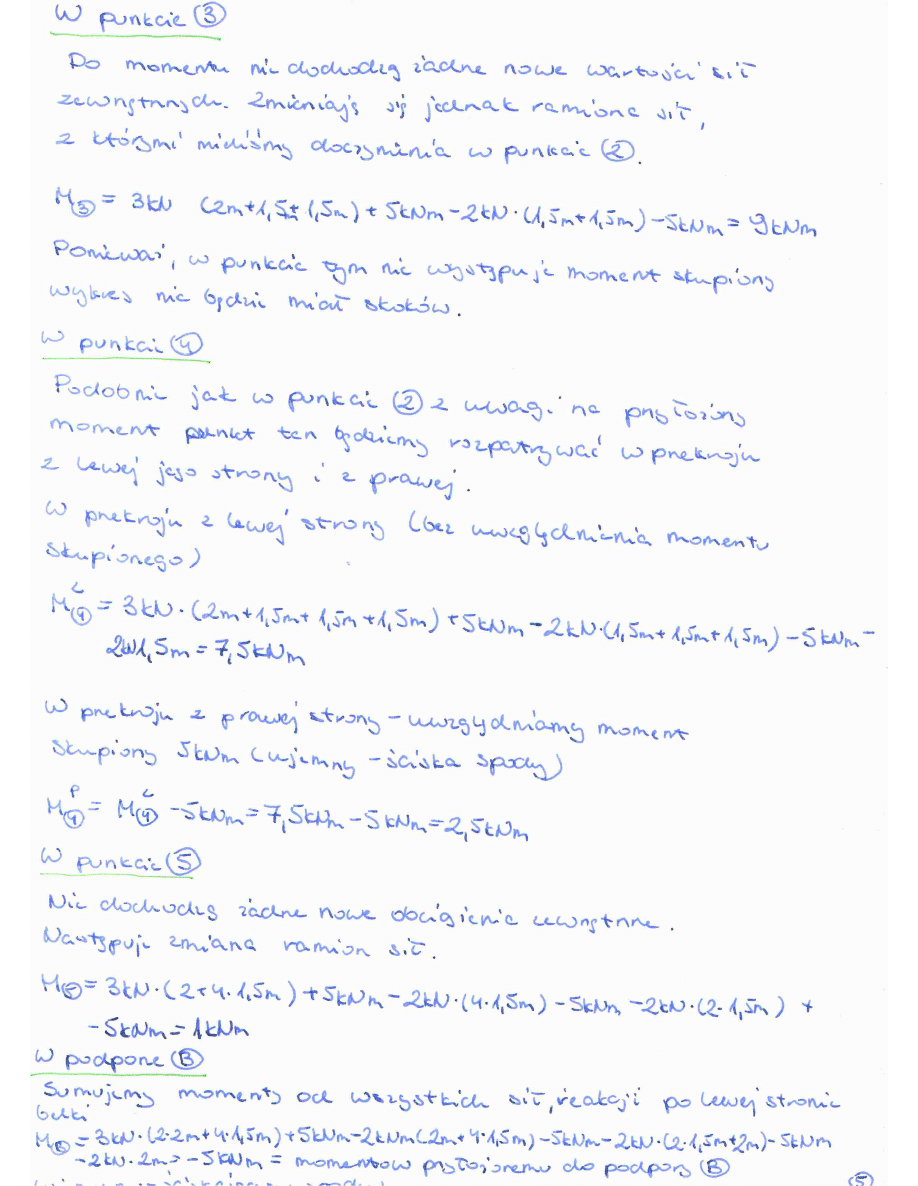 W punkcie ③
Do momentu nie dochodzą żadne nowe wartości sił
zewnętrznych. Zmieniają się jednak ramiona sił,
z którymi mieliśmy doczynienia w punkcie ②.
M③ = 3kN (2m+1,5+1,5m) + 5kNm - 2kN·(1,5m+1,5m) - 5kNm = 9kNm
Ponieważ, w punkcie tym nie występuje moment skupiony
wykres nie będzie miał skoków.
W punkcie ④
Podobnie jak w punkcie ② z uwagi na przyłożony
moment punkt ten będziemy rozpatrywać w przekroju
z lewej jego strony i z prawej.
W przekroju z lewej strony (bez uwzględniania momentu
skupionego)
M④ᴸ = 3kN·(2m+1,5m+1,5m+1,5m) + 5kNm - 2kN·(1,5m+1,5m+1,5m) - 5kNm -
2kN1,5m = 7,5kNm
W przekroju z prawej strony - uwzględniamy moment
skupiony 5kNm (ujemny - ściska spody)
M④ᴾ = M④ᴸ - 5kNm = 7,5kNm - 5kNm = 2,5kNm
W punkcie ⑤
Nie dochodzą żadne nowe obciążenia zewnętrzne.
Następuje zmiana ramion sił.
M⑤ = 3kN·(2+4·1,5m) + 5kNm - 2kN·(4·1,5m) - 5kNm - 2kN·(2·1,5m) +
- 5kNm = 1kNm
W podporze Ⓑ
Sumujemy momenty od wszystkich sił, reakcji po lewej stronie
belki
MⒷ = 3kN·(2·2m+4·1,5m) + 5kNm - 2kNm(2m+4·1,5m) - 5kNm - 2kN·(2·1,5m+2m) - 5kNm
- 2kN·2m - 5kNm = momentow przyłożonemu do podpory Ⓑ
⑤